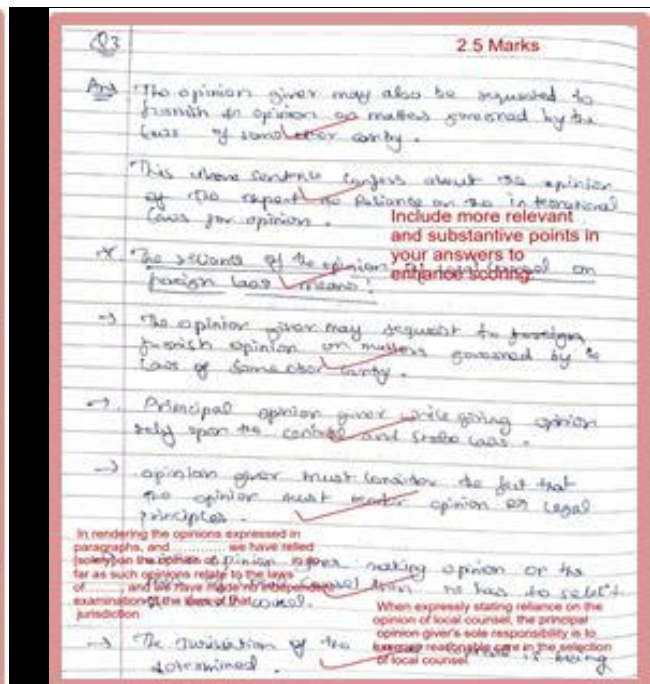 Q3
2.5 Marks
Ans The opinion giver may also be requested to
furnish an opinion on matters governed by the
laws of some other
This whole sentence about the opinion
of the expert reliance on the international
laws for opinion.
Include more relevant
and substantive points in
your answers to
enhance scoring.
* The reliance of the opinion of legal counsel on
foreign laws means:
→ The opinion giver may request to
furnish opinion on matters governed by
laws of some other
→ Principal opinion giver while giving opinion
rely upon the central and state laws.
→ opinion giver must consider the fact that
the opinion must opinion or legal
principles.
In rendering the opinions expressed in
paragraphs, and ............ we have relied
[solely]on the opinion of
far as such opinions relate to the laws
of ........, and we have made no independent
examination of the laws of that
jurisdiction
opinion making opinion or the
counsel then he has to select
counsel.
When expressly stating reliance on the
opinion of local counsel, the principal
opinion giver's sole responsibility is to
exercise reasonable care in the selection
of local counsel.
→ The of the is being
determined.